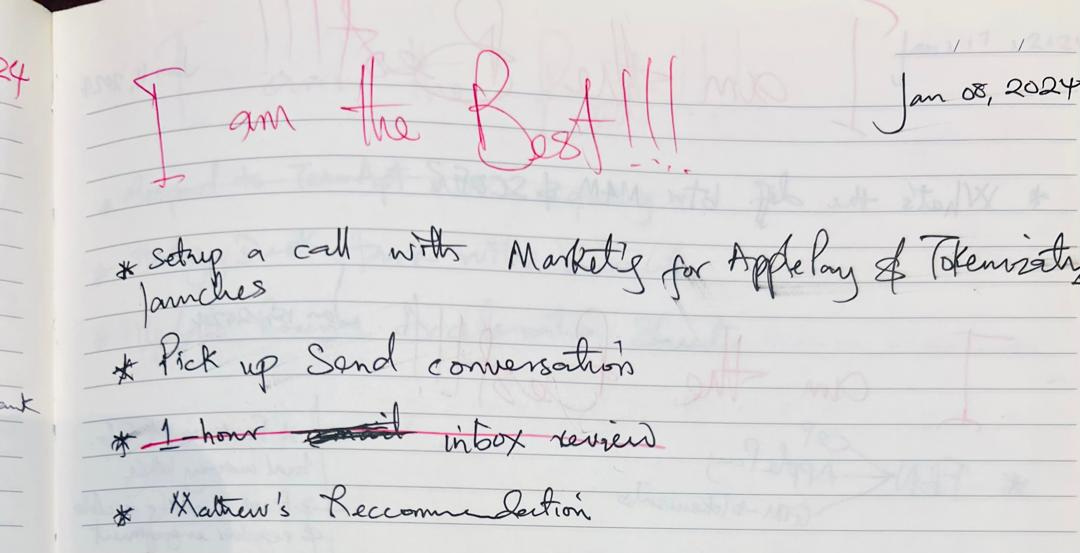 24
I am the Best!!!
Jan 08, 2024
* Setup a call with Market'g for Apple Pay & Tokenizat
launches
* Pick up Send conversation
* 1-hour email inbox review
* Matthew's Reccommendation